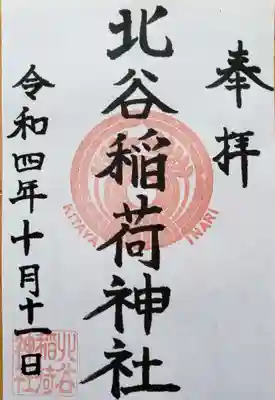 奉拝
北谷稲荷神社
令和四年十月十一日
KITAYA INARI
北谷
稲荷
神社